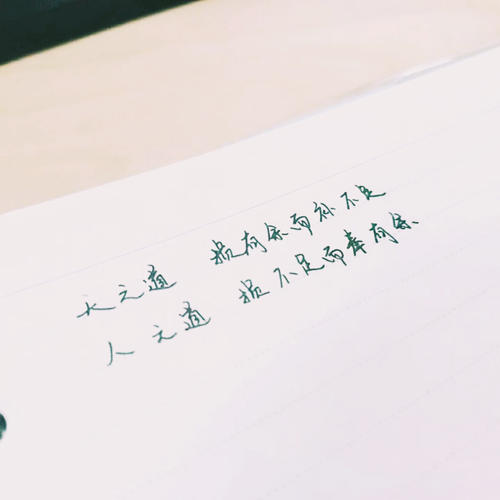 天之道 损有余而补不足
人之道 损不足而奉有余